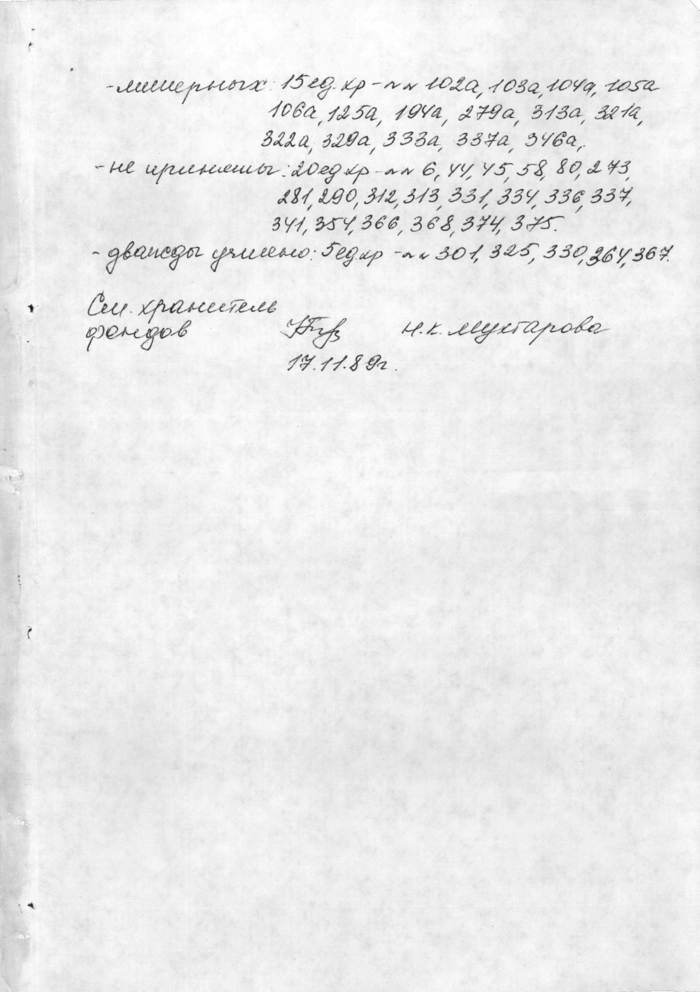 - литерных: 15 ед. хр - №№ 102а, 103а, 104а, 105а
106а, 125а, 194а, 279а, 313а, 321а,
322а, 329а, 333а, 337а, 346а,
- не приняты: 20 ед хр - №№ 6, 44, 45, 58, 80, 273,
281, 290, 312, 313, 331, 334, 336, 337,
341, 354, 366, 368, 374, 375.
- дважды учтено: 5 ед хр - №№ 301, 325, 330, 264, 367.
Ст. хранитель
фондов Н.К. Мухтарова
17.11.89г.